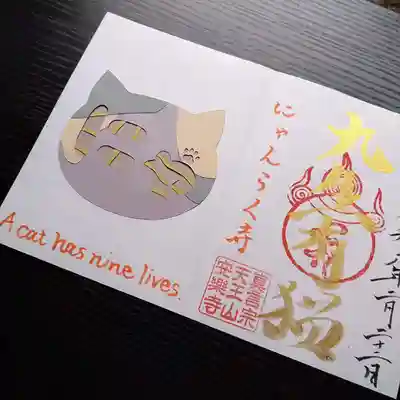 年二月二十二日
九
有猫
にゃんらく寺
真言宗
天王山
安樂寺
A cat has nine lives.